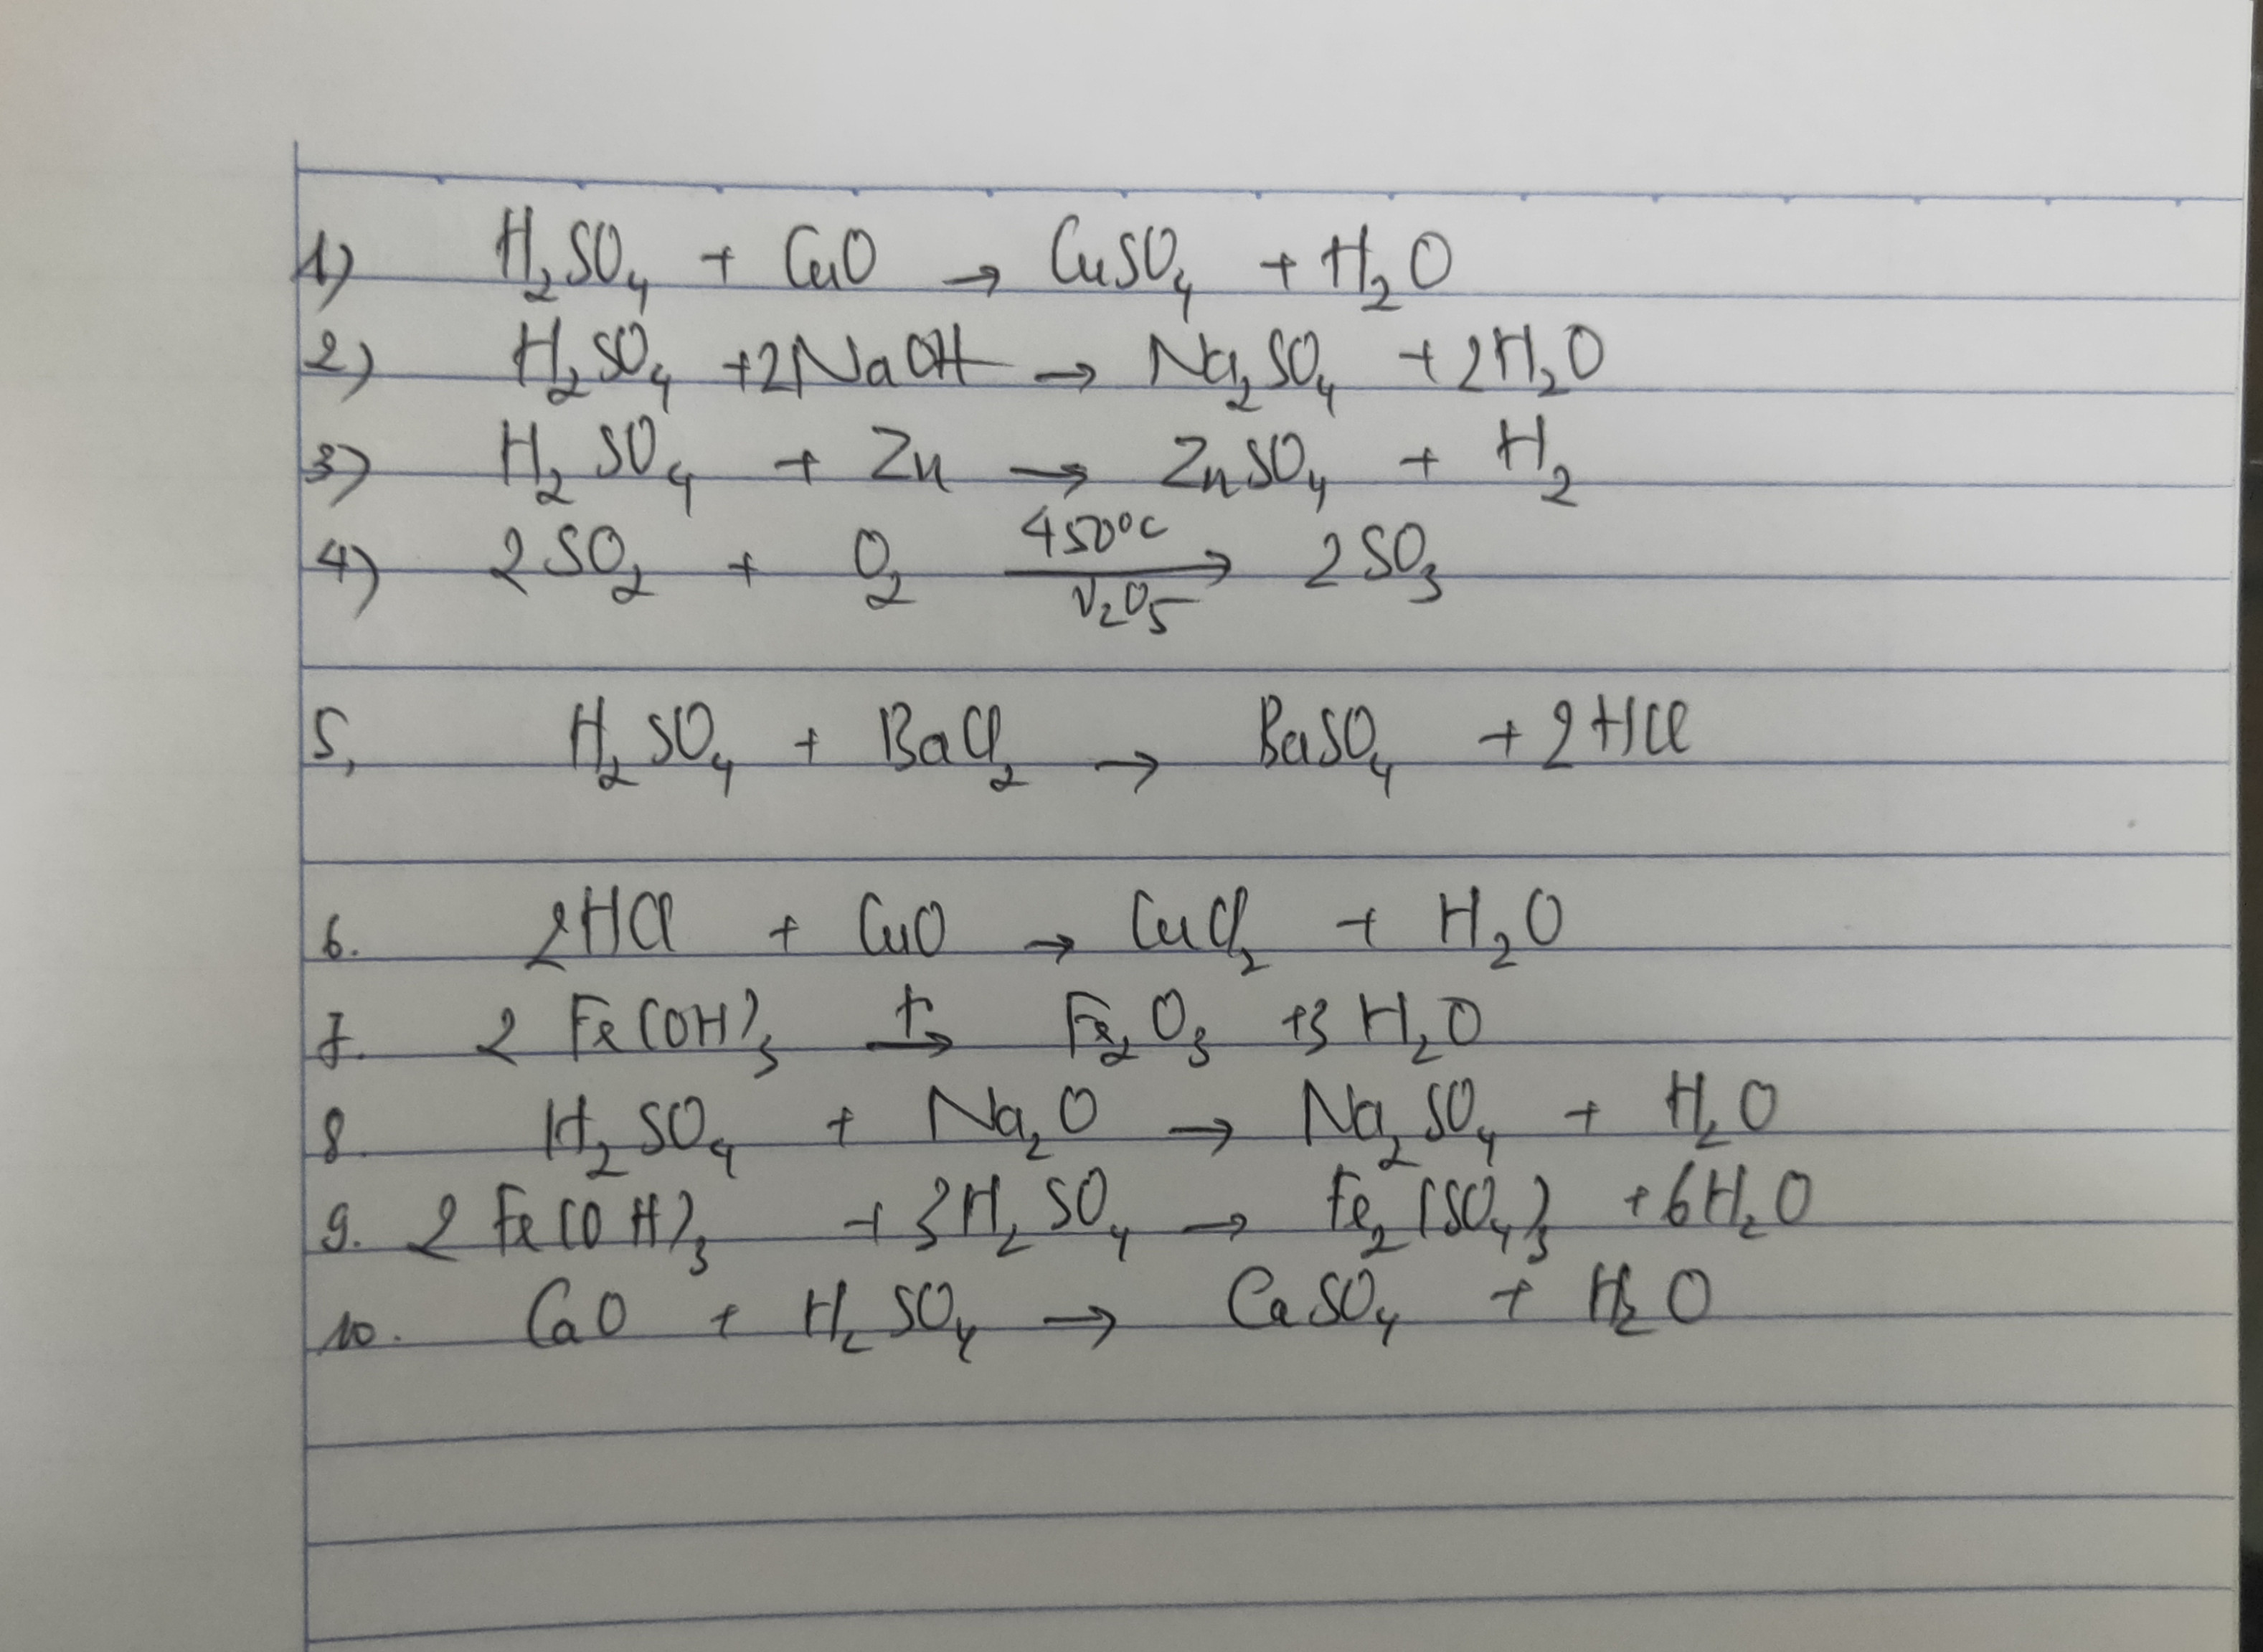 1) H₂SO₄ + CuO → CuSO₄ + H₂O
2) H₂SO₄ +2NaOH → Na₂SO₄ +2H₂O
3) H₂SO₄ + Zn → ZnSO₄ + H₂
4) 2SO₂ + O₂ 450°C → V₂O₅ 2SO₃
5, H₂SO₄ + BaCl₂ → BaSO₄ + 2HCl
6. 2HCl + CuO → CuCl₂ + H₂O
7. 2 Fe(OH)₃ t° → Fe₂O₃ +3 H₂O
8. H₂SO₄ + Na₂O → Na₂SO₄ + H₂O
9. 2 Fe(OH)₃ + 3H₂SO₄ → Fe₂(SO₄)₃ +6H₂O
10. CaO + H₂SO₄ → CaSO₄ + H₂O